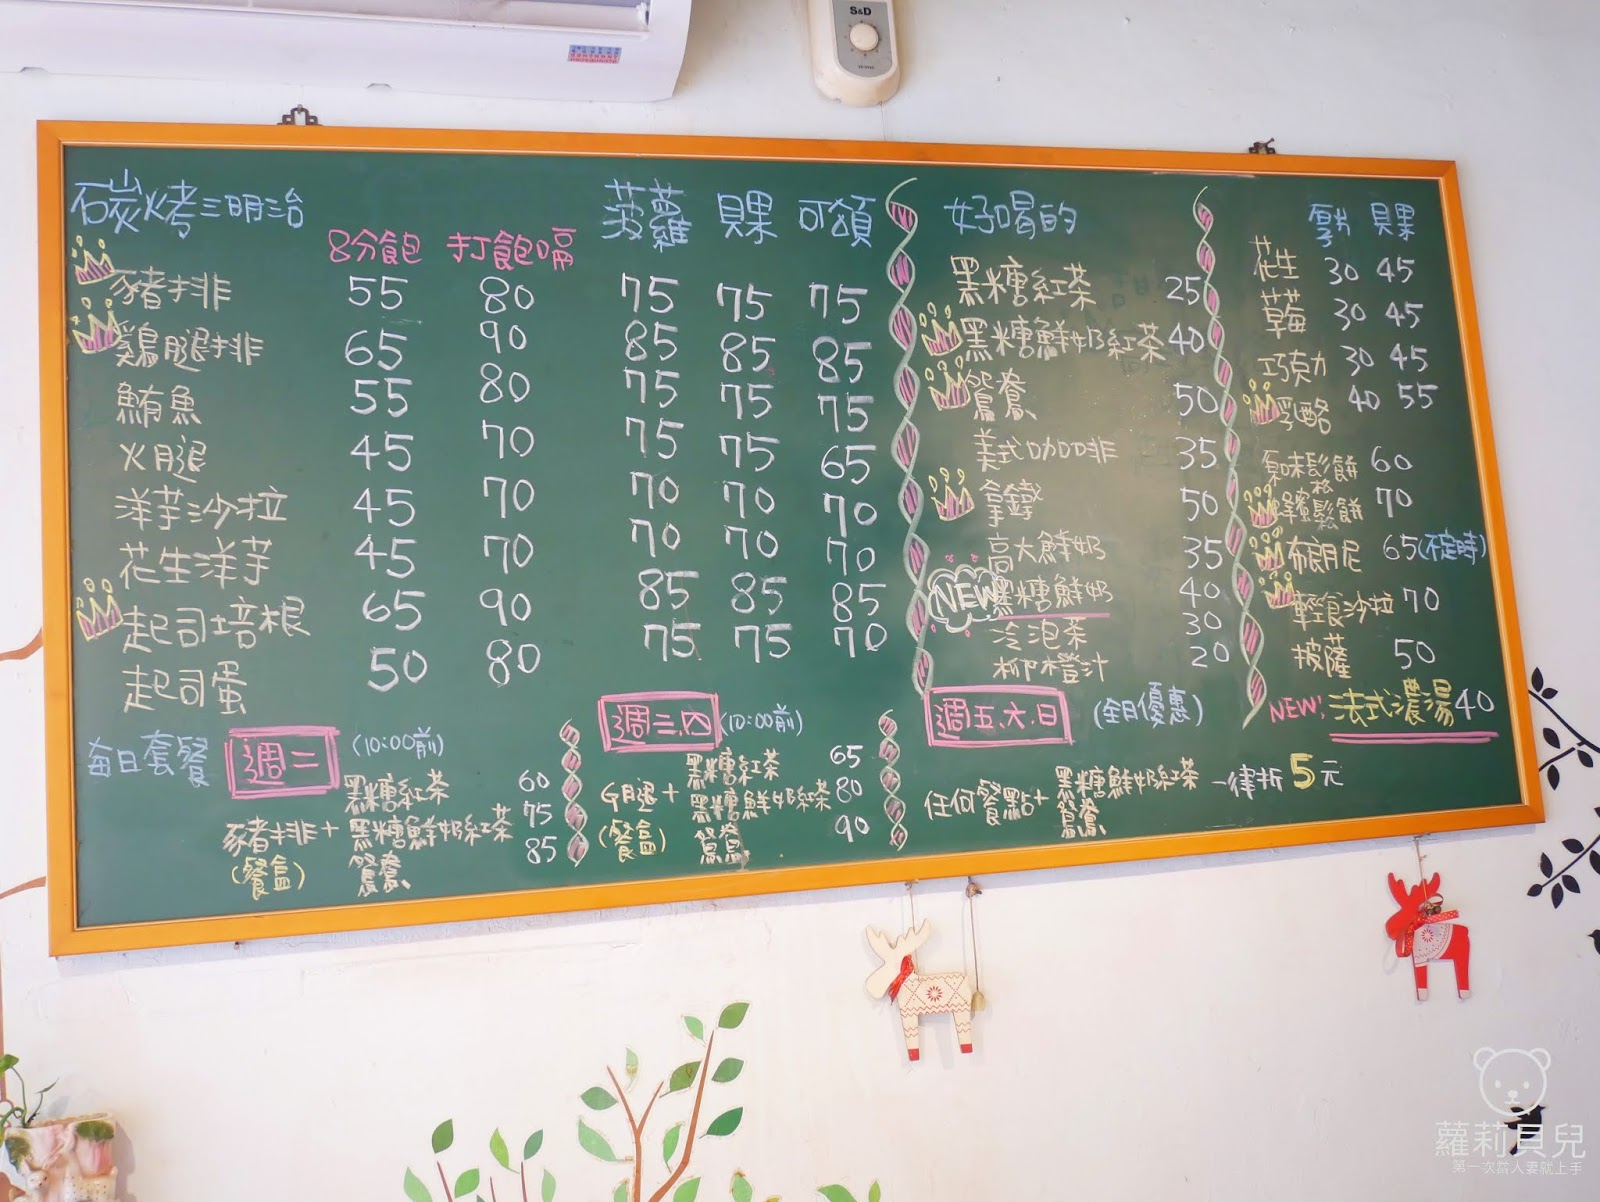 S&D
碳烤三明治
8分飽 打飽嗝 菠蘿 貝果 可頌
豬排 55 80 75 75 75
鷄腿排 65 90 85 85 85
鮪魚 55 80 75 75 75
火腿 45 70 75 75 65
洋芋沙拉 45 70 70 70 70
花生洋芋 45 70 70 70 70
起司培根 65 90 85 85 85
起司蛋 50 80 75 75 70
好喝的
黑糖紅茶 25
黑糖鮮奶紅茶 40
鴛鴦 50
美式咖啡 35
拿鐵 50
高大鮮奶 35
NEW 黑糖鮮奶 40
冷泡茶 30
柳橙汁 20
厚片 貝果
花生 30 45
草莓 30 45
巧克力 30 45
乳酪 40 55
原味鬆餅 60
蜂蜜鬆餅 70
布朗尼 65(不定時)
輕食沙拉 70
披薩 50
NEW! 法式濃湯 40
每日套餐
週二 (10:00前)
豬排+
(餐盒)
黑糖紅茶 60
黑糖鮮奶紅茶 75
鴛鴦 85
週三.四 (10:00前)
(餐盒)
黑糖紅茶 65
黑糖鮮奶紅茶 80
鴛鴦 90
週五.六.日 (全日優惠)
任何餐點+
黑糖鮮奶紅茶
鴛鴦
一律折5元
蘿莉貝兒
第一次當人妻就上手